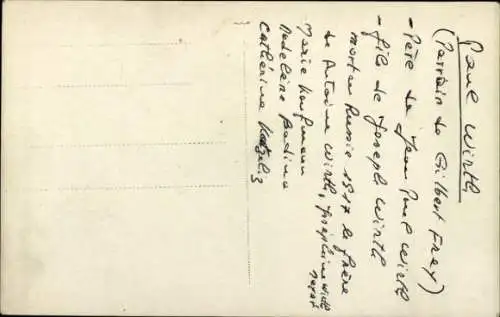 Paul Wirth
(Parrain de Gilbert Frey)
- Père de Jean Paul Wirth
- fils de Joseph Wirth
mort en Russie 1917 le frère
de Antoine Wirth, Joséphine Wirth
Marie Kaufmann
Madeleine Badina
Cathérine